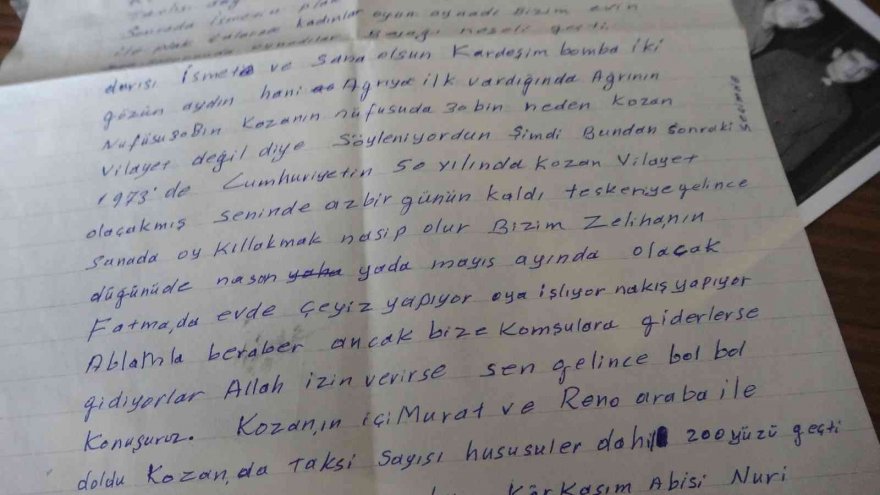 plan
Sonrada
kadınlar oyun oynadı Bizim evin
neşeli geçti.
darısı İsmete ve sana olsun Kardeşim bomba iki
gözün aydın hani Ağrıya ilk vardığında Ağrının
Nufüsü 30Bin Kozanın nüfusuda 30 bin neden Kozan
Vilayet değil diye Söyleniyordun Şimdi Bundan Sonraki seçimde
1973'de Cumhuriyetin 50 yılında Kozan Vilayet
olaçakmış seninde az bir günün kaldı teskeriye gelince
Sanada oy Kıllakmak nasip olur Bizim Zelihanın
düğünüde nason yaha yada mayıs ayında olaçak
Fatma,da evde çeyiz yapıyor oya işlıyor nakış yapıyor
Ablamla beraber ancak bize komşulara giderlerse
gidiyorlar Allah izin verirse sen gelince bol bol
Konuşuruz. Kozan,ın içi Murat ve Reno araba ile
doldu Kozan,da taksi sayısı hususuler dahil 200 yüzü geçti
Kör Kasım Abisi Nuri